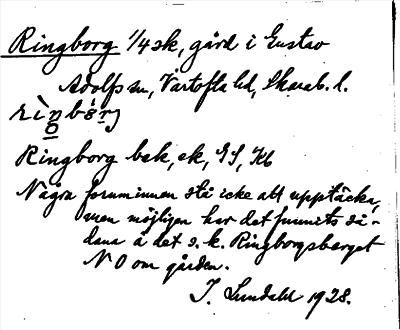 Ringborg 1/4 sk, gård i Gustav
Adolfs sn, Vartofta hd, Skarab. l.
rìŋbórj
Ringborg bek, ek, GS, Kb
Några fornminnen stå icke att upptäcka,
men möjligen har det funnits så-
dana å det s. k. Ringborgsberget
N O om gården.
I. Lundahl 1928.